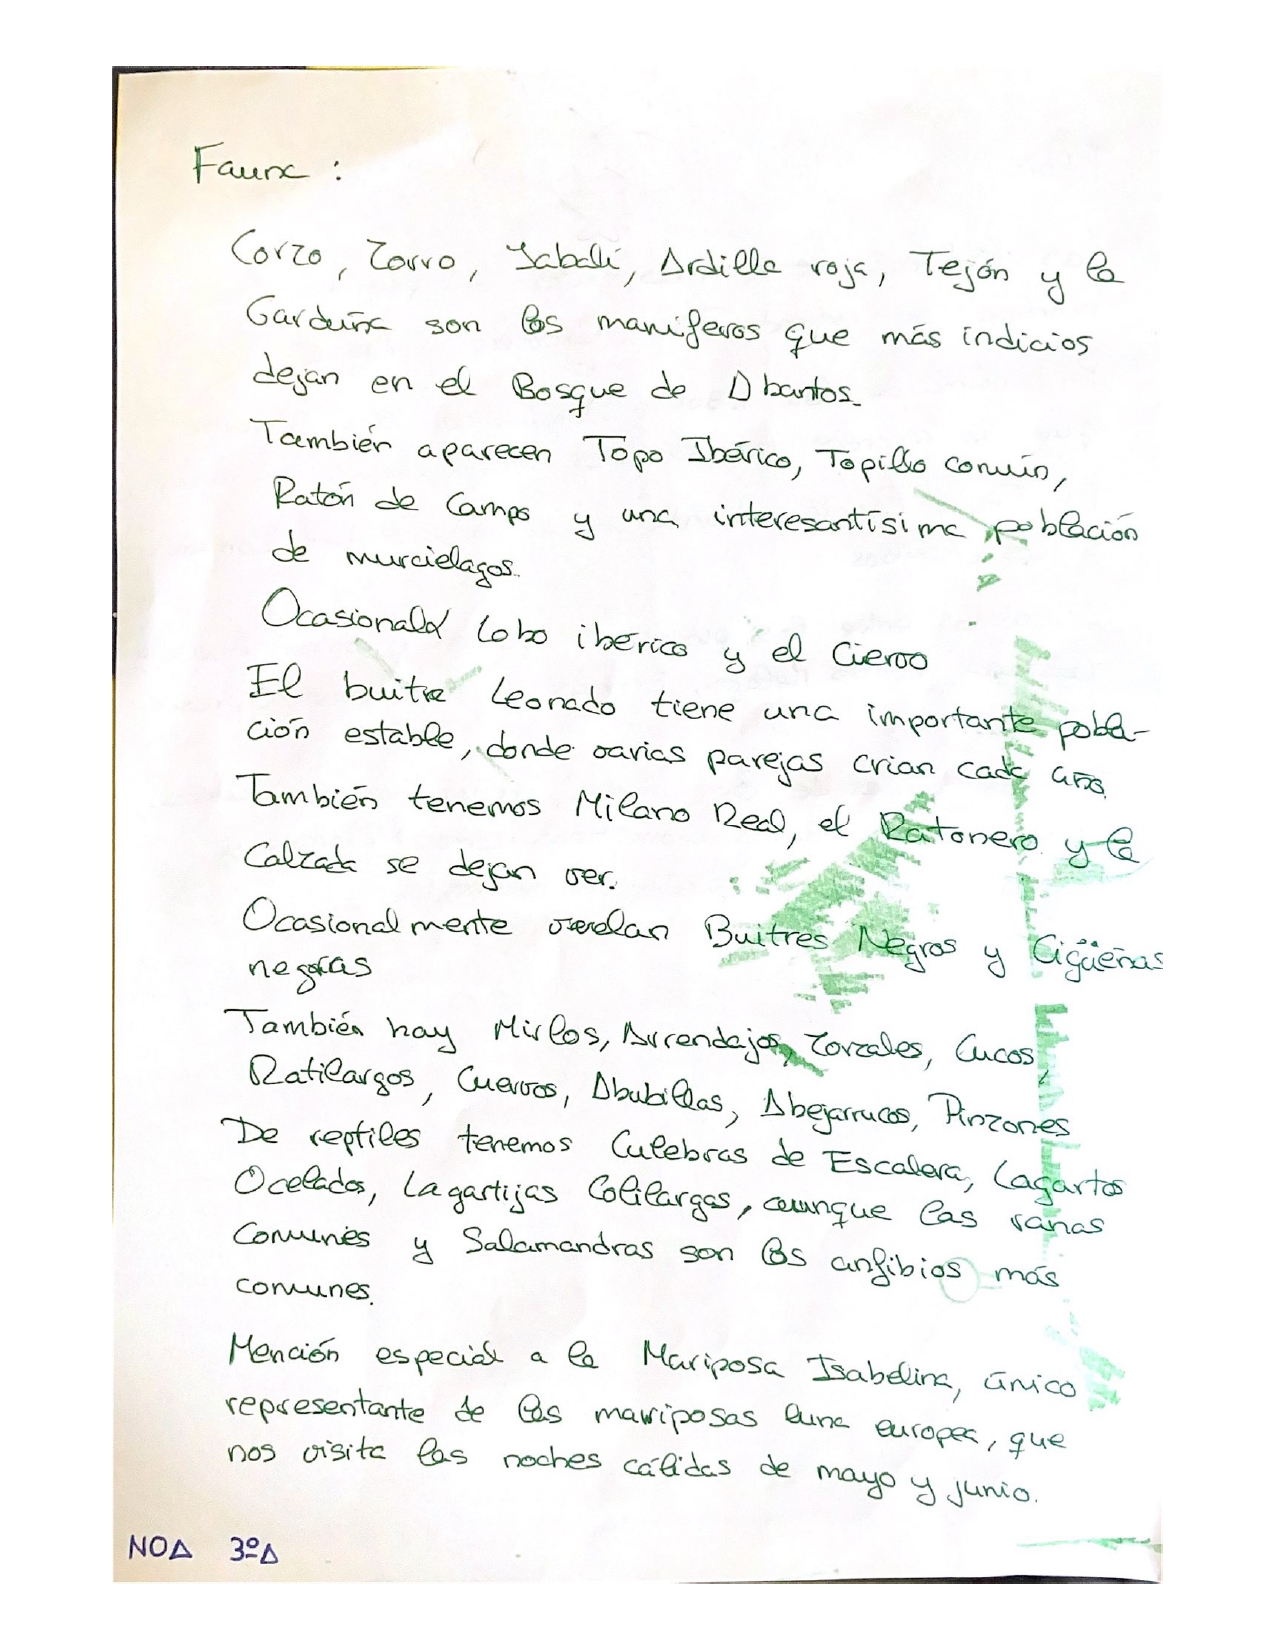 Fauna :
Corzo, Zorro, Jabalí, Ardilla roja, Tejón y la
Garduña son los maníferos que más indicios
dejan en el Bosque de Abantos.
También aparecen Topo Ibérico, Topillo común,
Ratón de Campo y una interesantísima población
de murcielagos.
Ocasional Lobo ibérico y el Ciervo
El buitre Leonado tiene una importante pobla-
ción estable, donde varias parejas crian cada año.
También tenemos Milano Real, el Ratonero y la
Calzada se dejan ver.
Ocasionalmente vuelan Buitres Negros y Cigüeñas
negras
También hay Mirlos, Arrendajos, Zorzales, Cucos,
Ratilargos, Cuervos, Abubillas, Abejarrucos, Pinzones
De reptiles tenemos Culebras de Escalera, Lagartos
Ocelados, Lagartijas Colilargas, aunque las ranas
Comunes y Salamandras son los anfibios más
comunes.
Mención especial a la Mariposa Isabelina, único
representante de las mariposas luna europea, que
nos visita las noches cálidas de mayo y junio.
NOA 3ºA